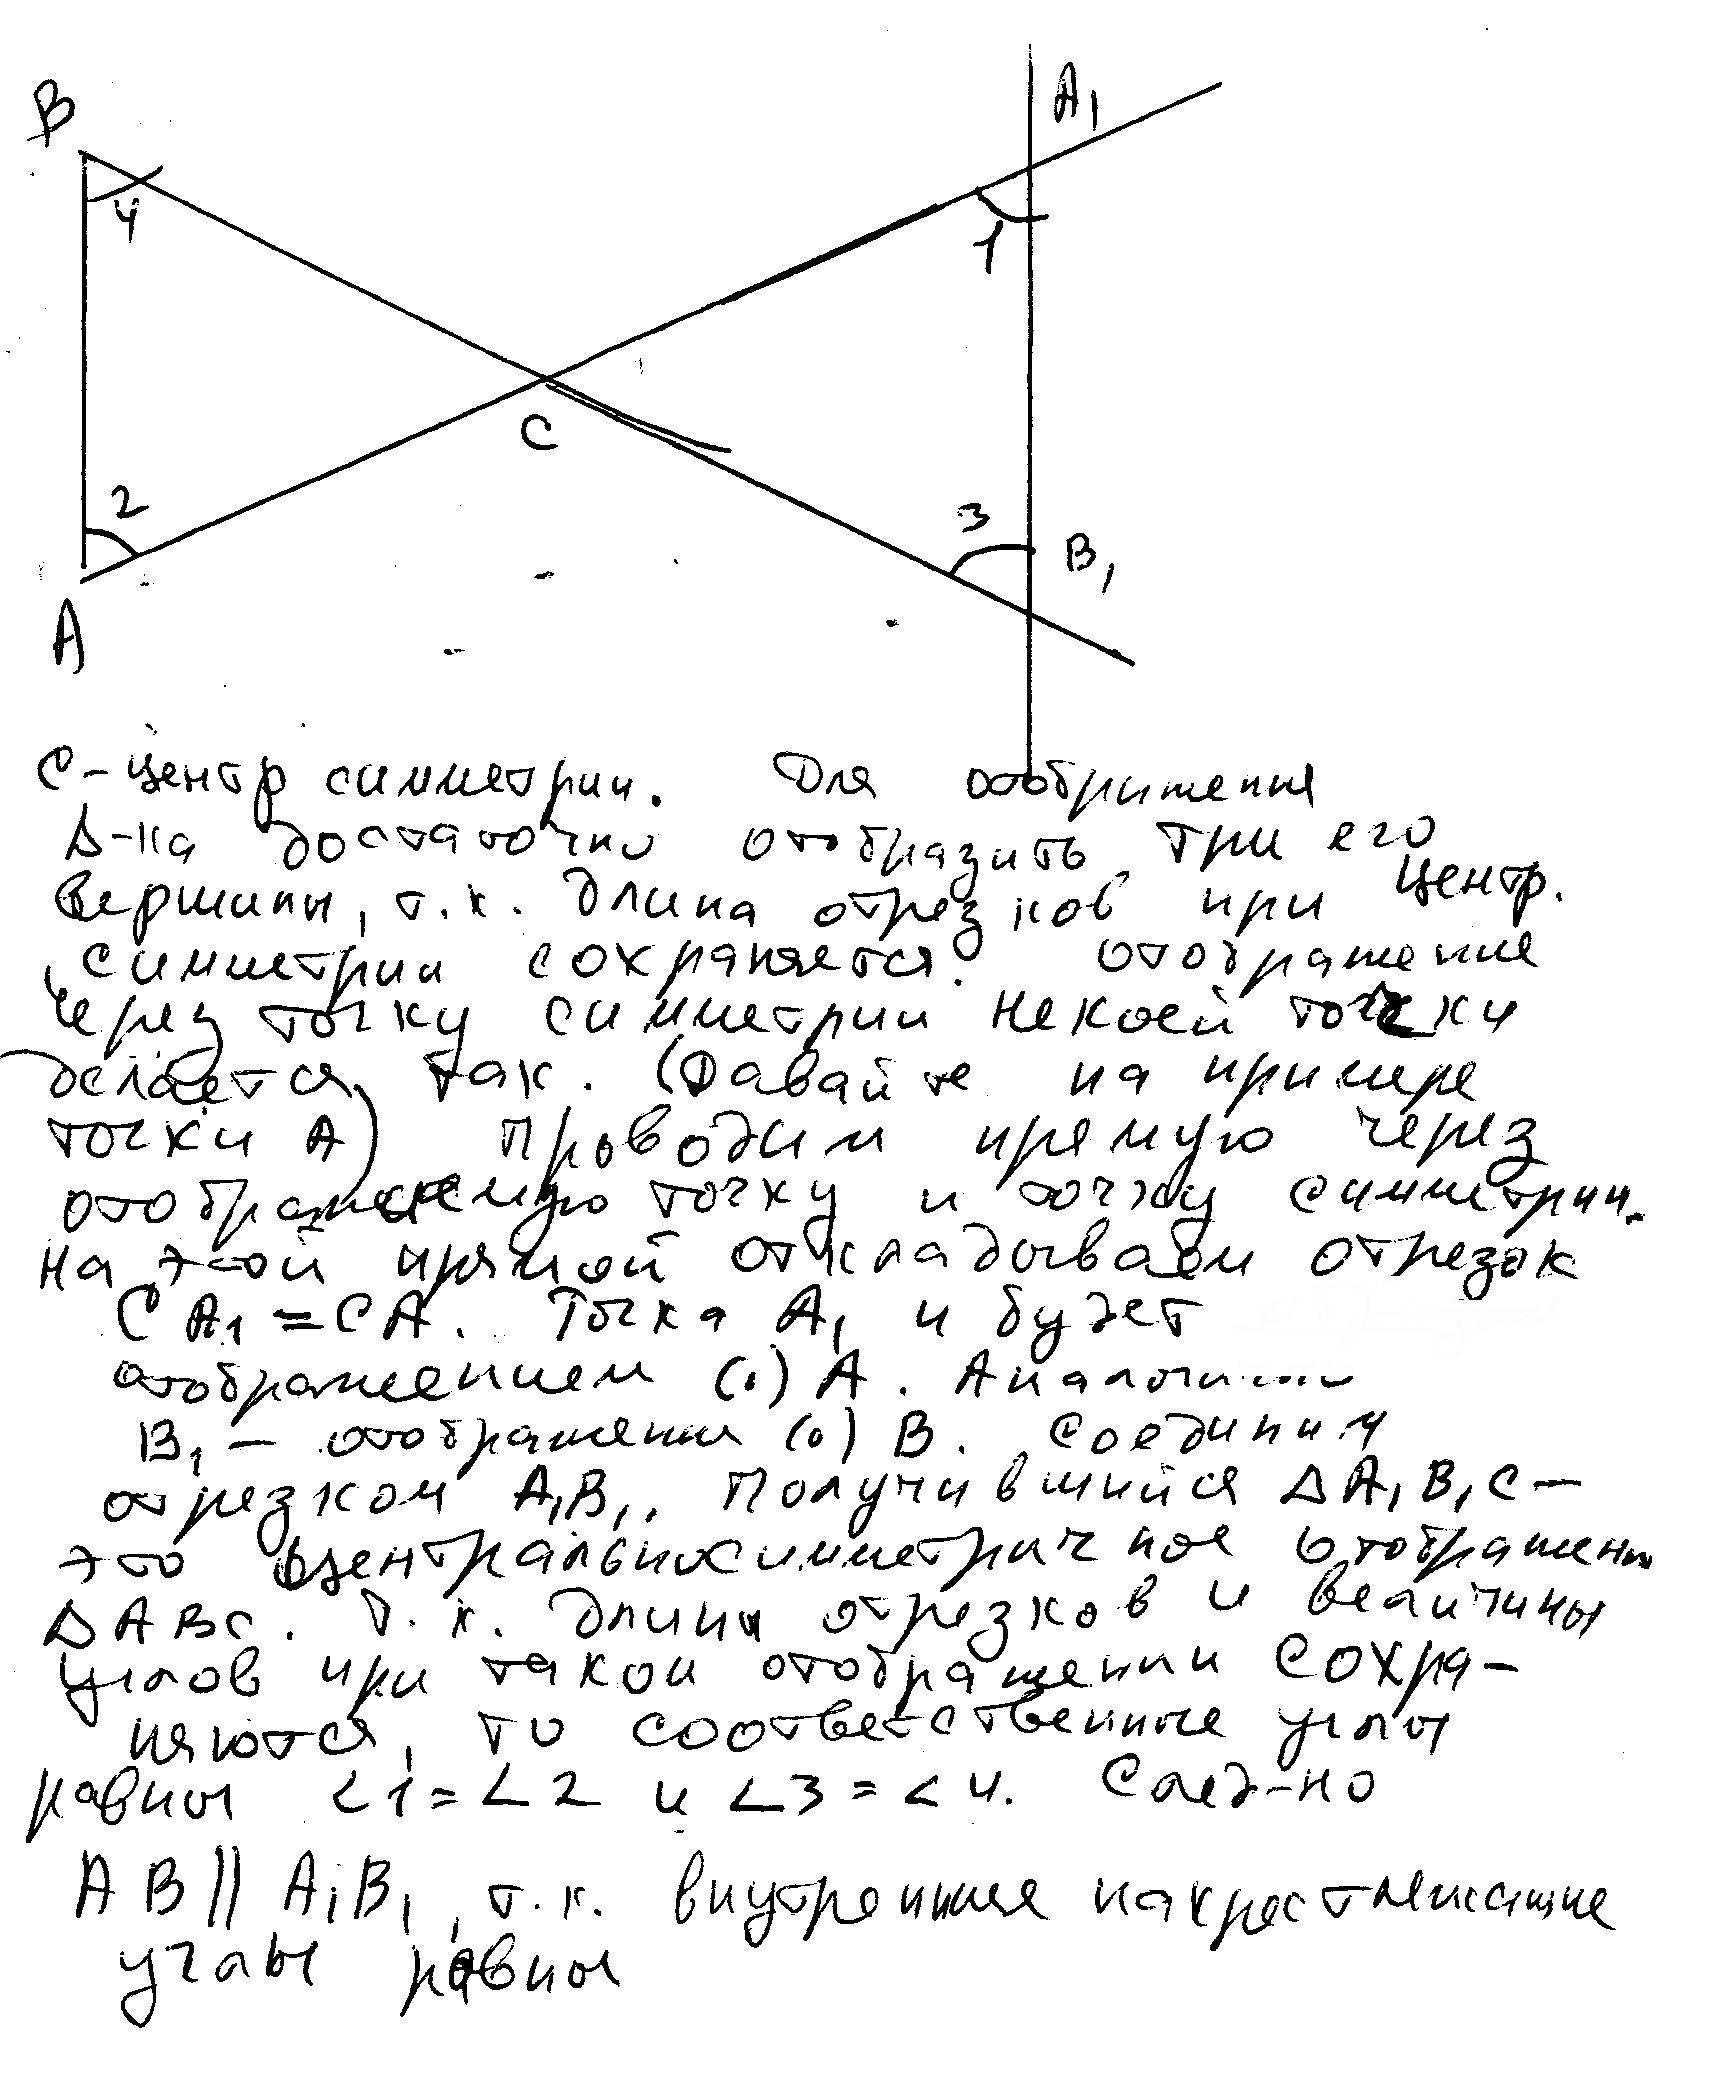 В
A₁
4
1
C
2
3
B₁
A
C - центр симметрии. Для отображения
Δ-ка достаточно отобразить три его
вершины, т.к. длина отрезков при центр.
симметрии сохраняется. отображение
через точку симметрии некоей точки
делается так. (Давайте на примере
точки А) Проводим прямую через
отображаемую точку и точку симметрии.
на этой прямой откладываем отрезок
CA₁ = CA. Точка A₁ и будет
отображением (·) A. Аналогично
B₁ - отображение (·) B. Соединим
отрезком A₁B₁. Получившийся ΔA₁B₁C -
это центральносимметричное отображение
ΔABC. Т.к. длины отрезков и величины
углов при таком отображении сохра-
няются, то соответственные углы
равны <1 = <2 и <3 = <4. След-но
AB || A₁B₁, т.к. внутренние накрест лежащие
углы равны